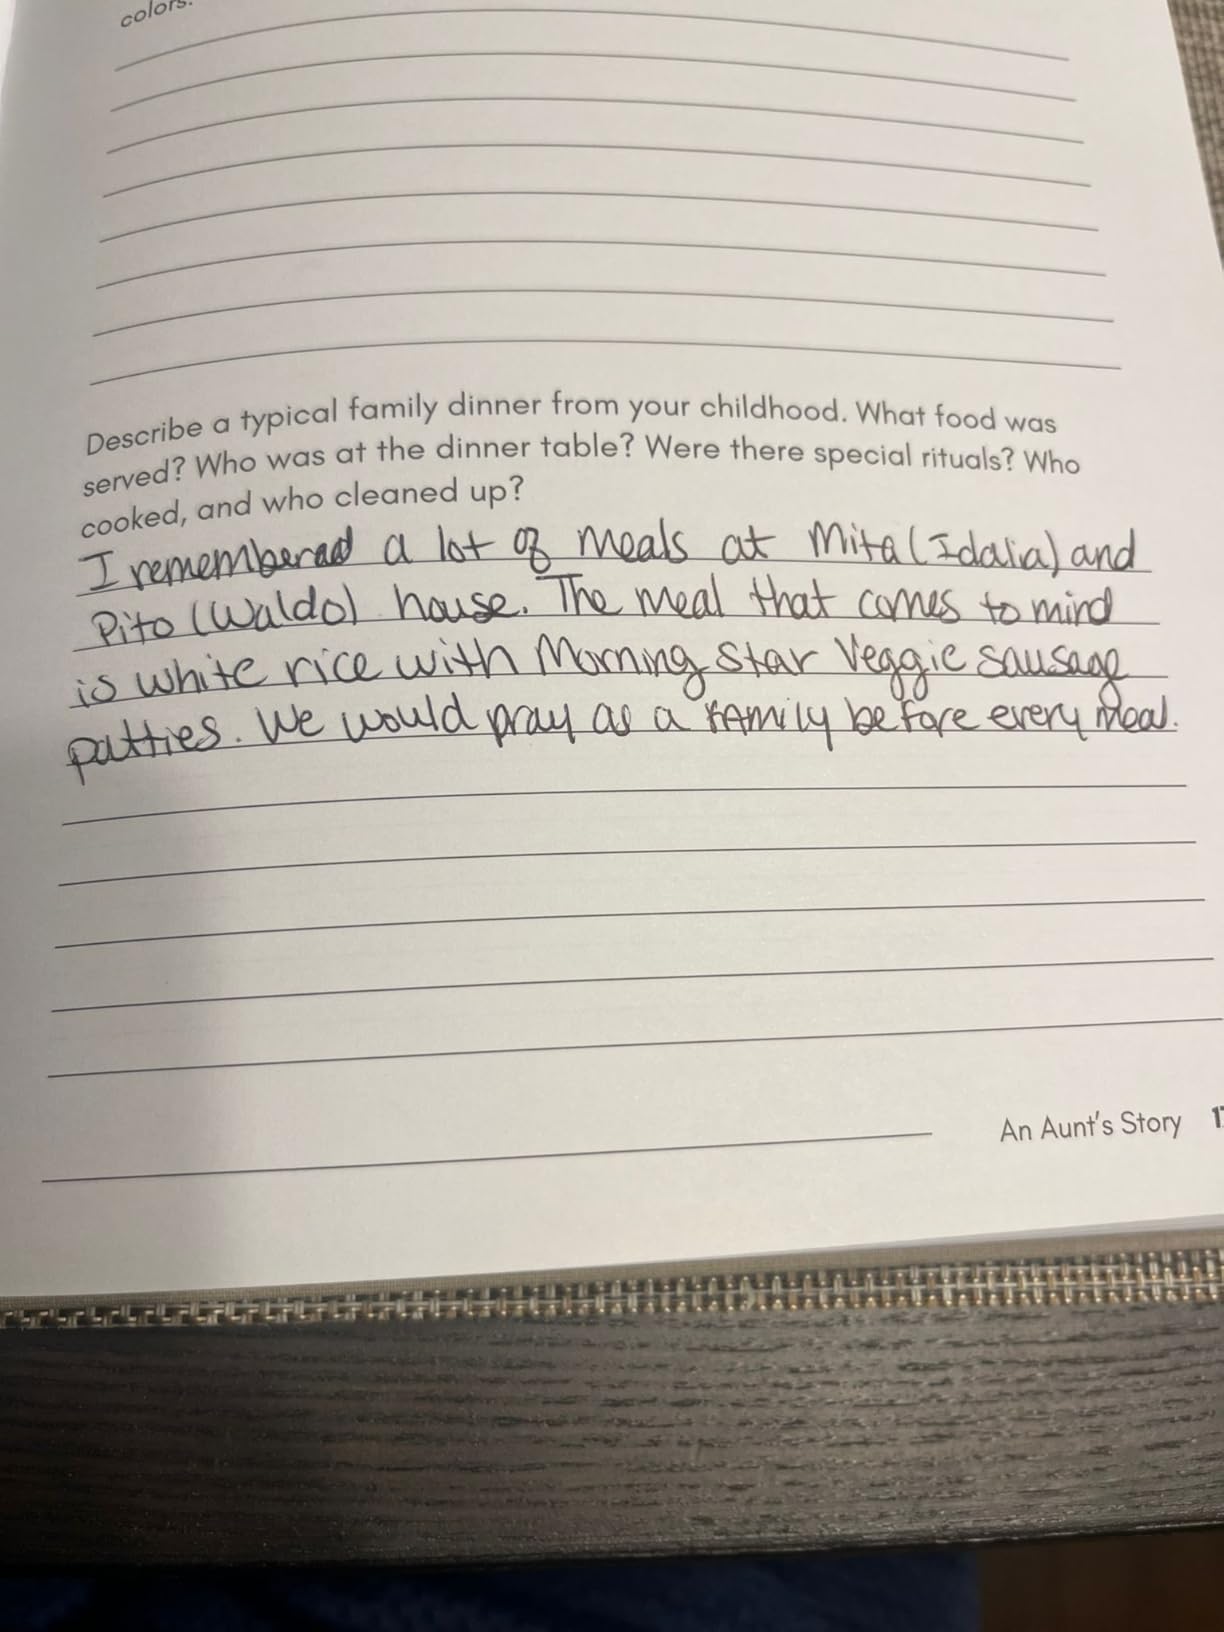 colors.
Describe a typical family dinner from your childhood. What food was
served? Who was at the dinner table? Were there special rituals? Who
cooked, and who cleaned up?
I remembered a lot of meals at Mita (Idalia) and
Pito (Waldo) house. The meal that comes to mind
is white rice with Morning Star Veggie sausage
patties. We would pray as a family before every meal.
An Aunt's Story